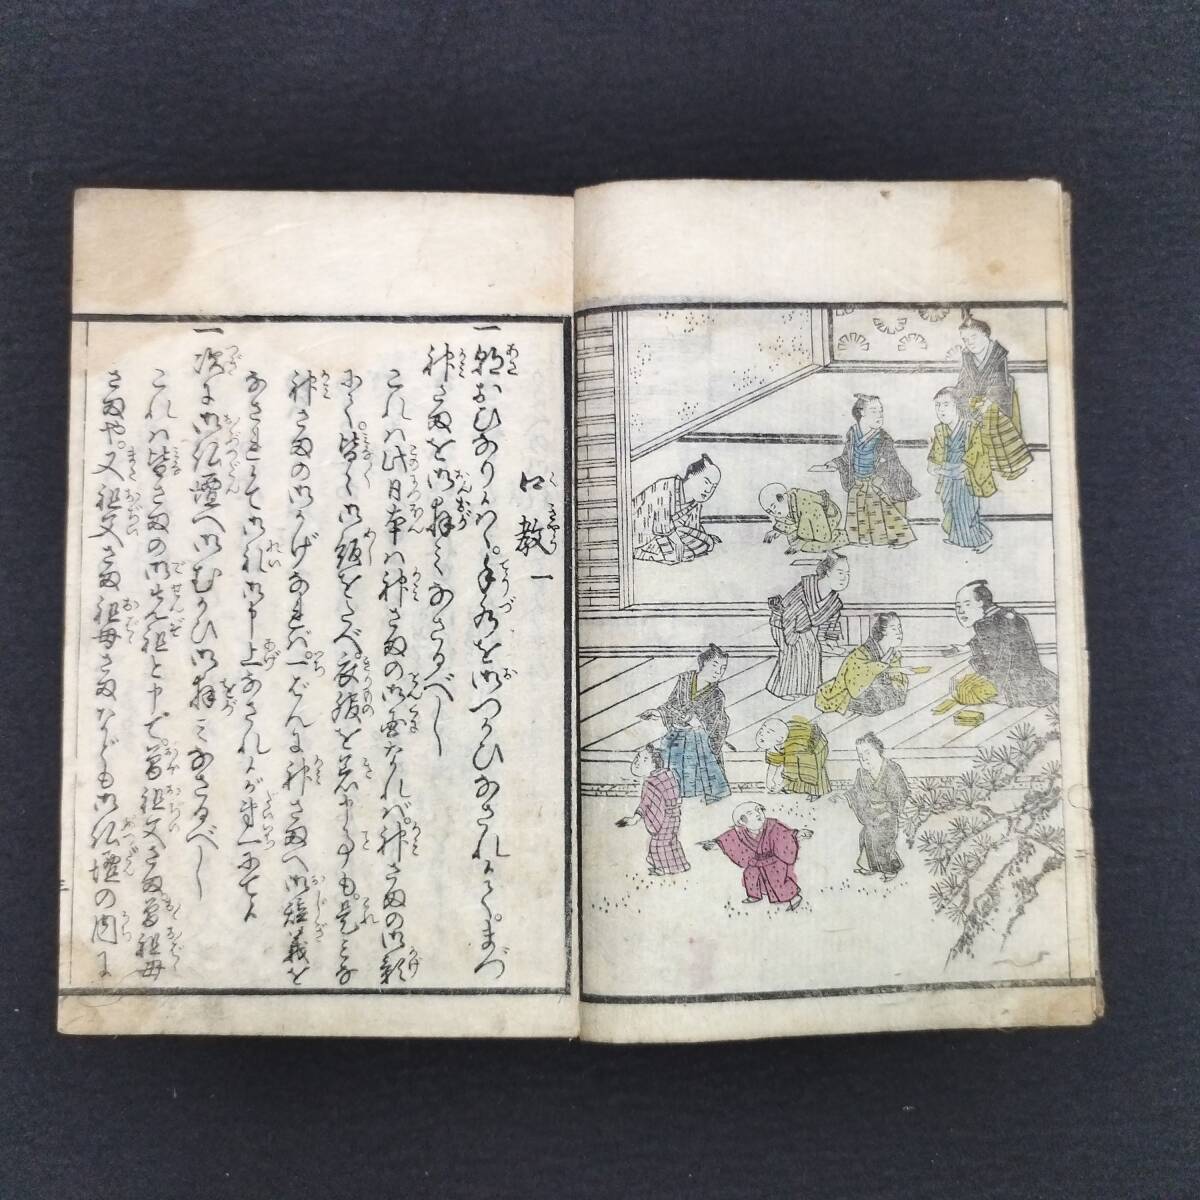 口教一
一朝おひなりらば、手水を御つかひなされまして、まづ
神さまを御拝みなさるべし
これハ此日本ハ神さまの御国なれバ、神さまの御影
にて、皆々御飯をたべ衣服を着申事も、是みな
神さまの御かげなれバ、一ばんに神さまへ御辞義を
なされて御礼御申上なされ
一次に御仏壇へ御むかひ御拝みなさるべし
これハ皆さまの御先祖と申て、曽祖父さま曽祖母
さまや、又祖父さま祖母さまなども御仏壇の内に
三